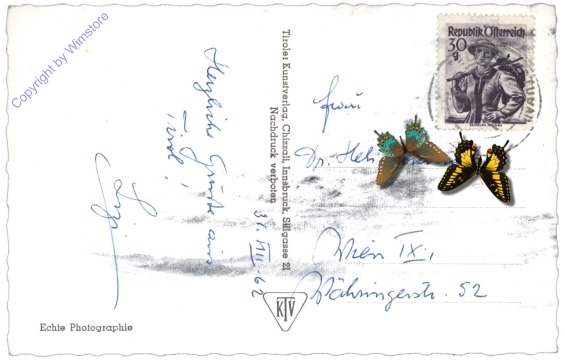 Copyright by Wimstore
Herzliche Grüße aus
Tirol!
31. VIII. 62
Echte Photographie
Tiroler Kunstverlag, Chizzali, Innsbruck, Sillgasse 21
Nachdruck verboten
KTV
Republik Österreich
30 g
Frau
Dr.
Wien IX;
Währingerstr. 52